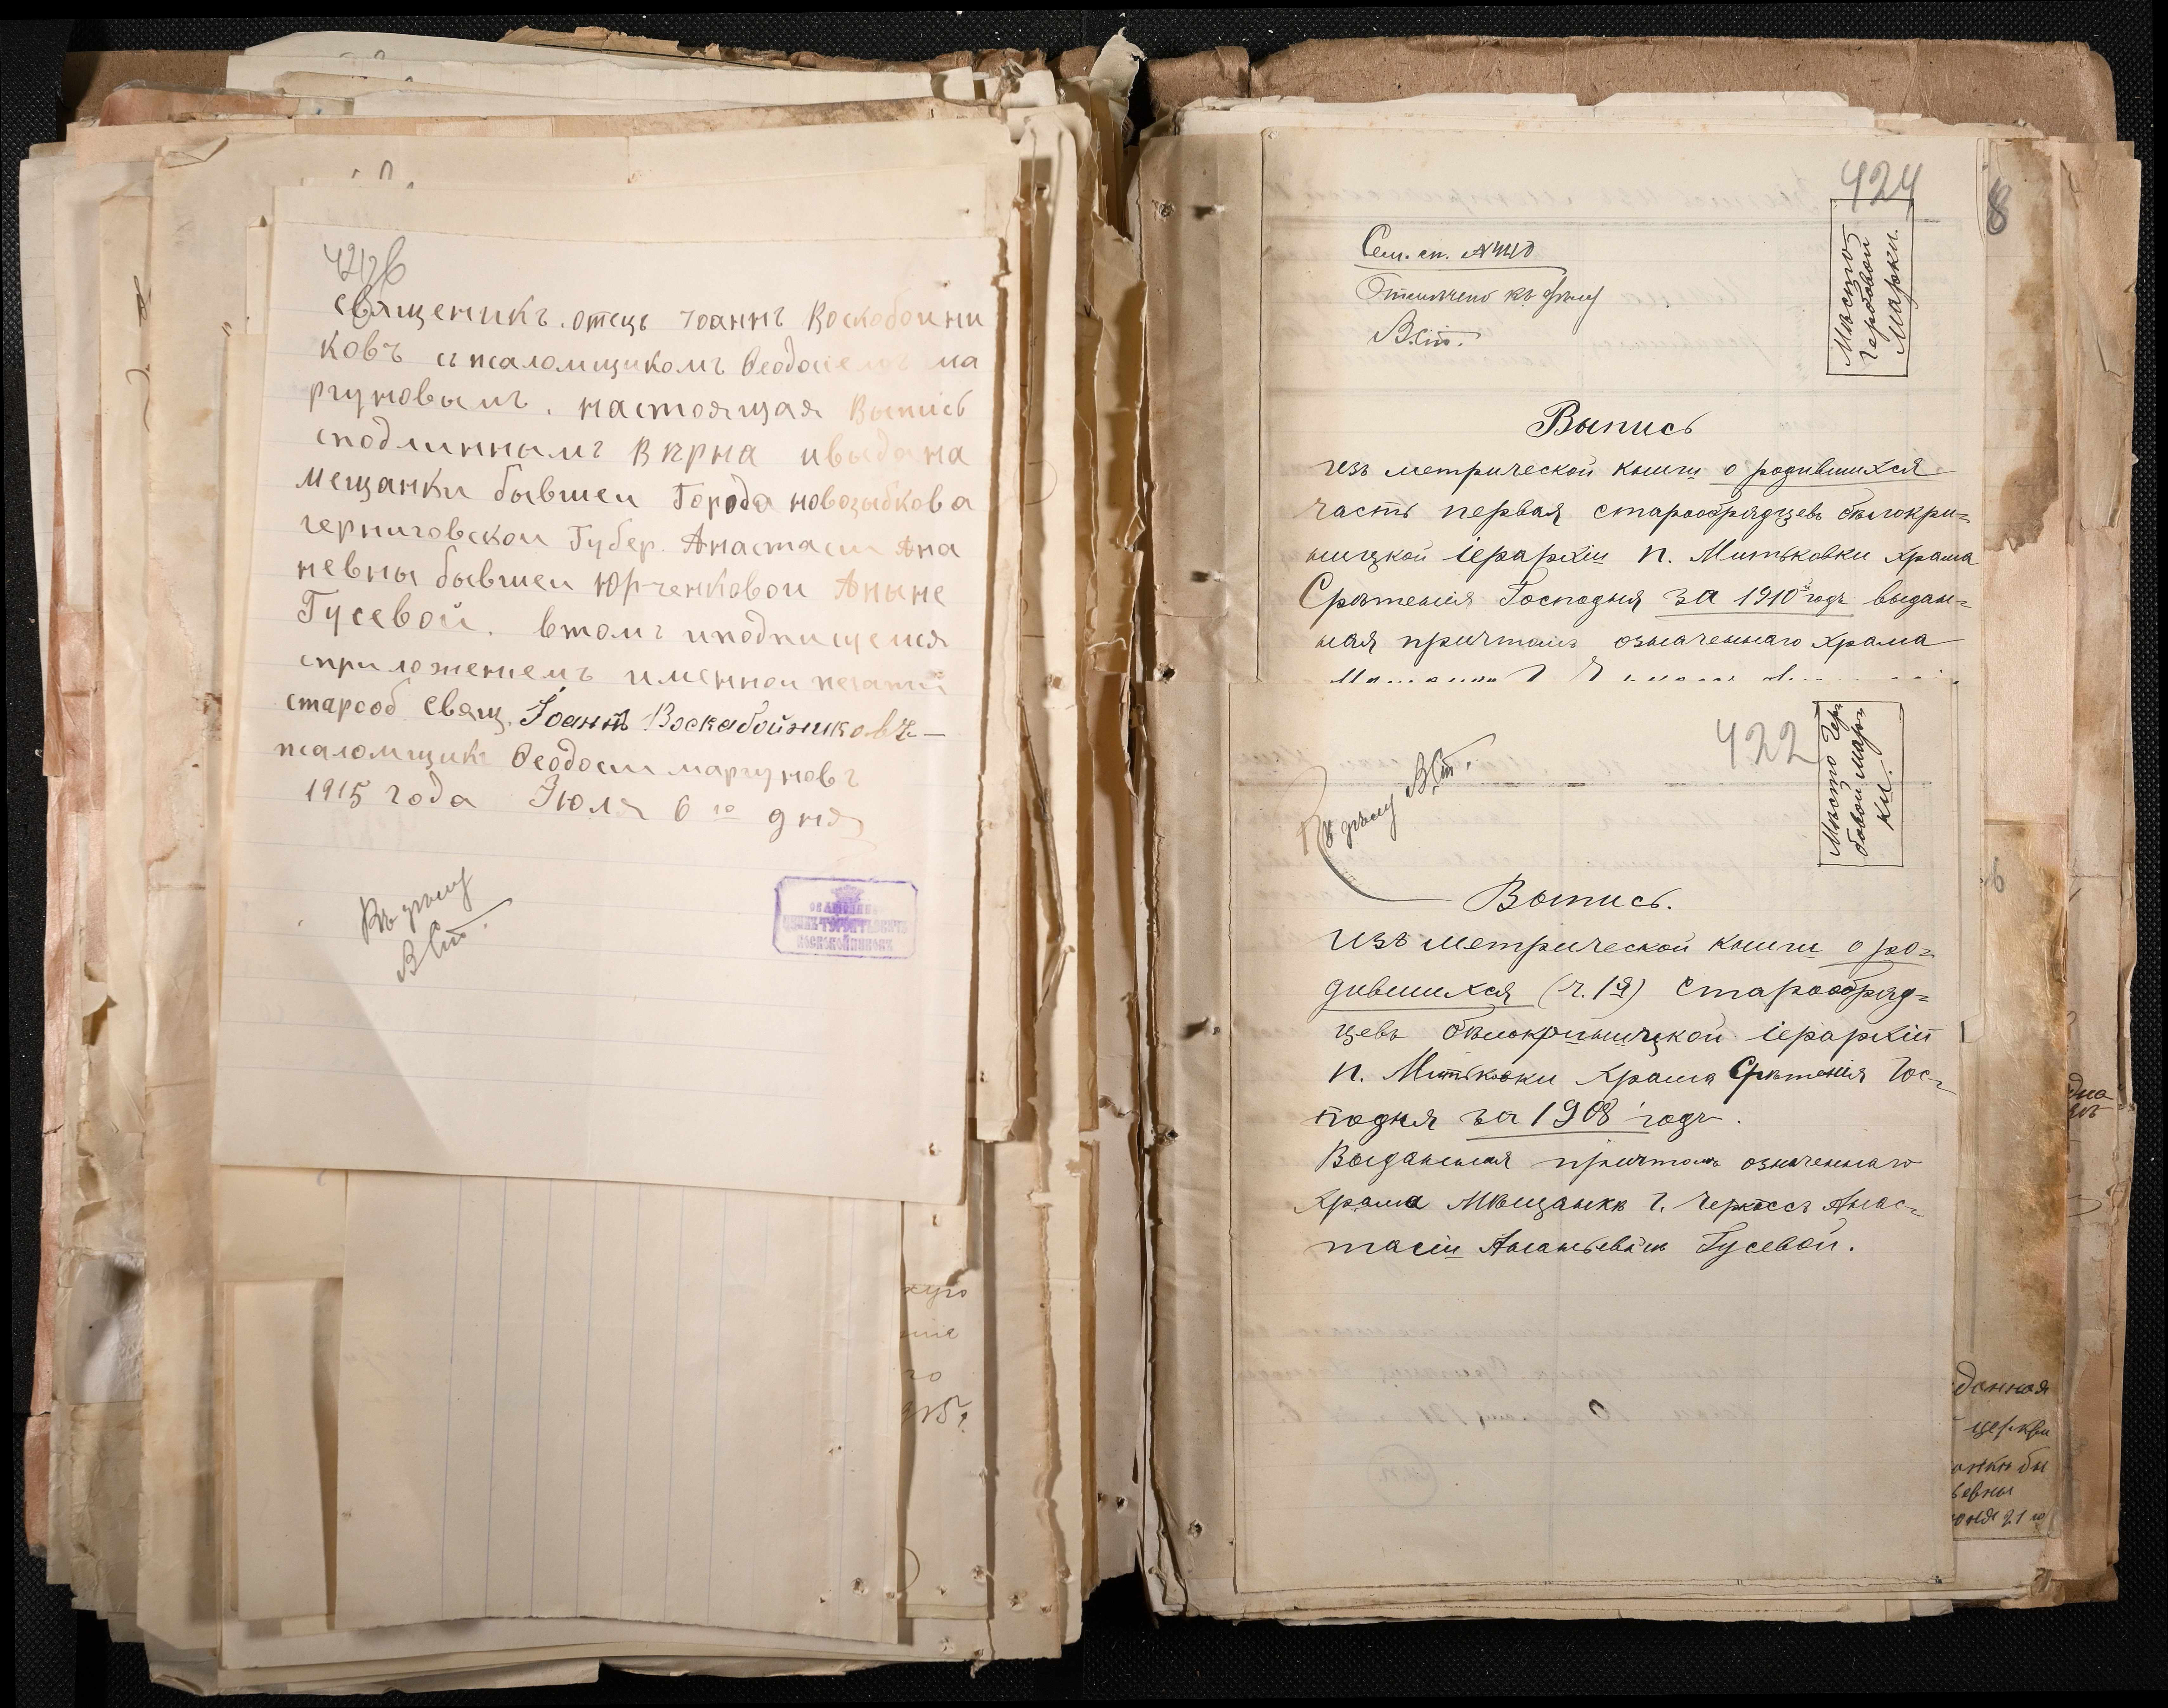 священикъ. отецъ Іоаннъ Воскобоини
ковъ съ псаломщикомъ Ѳеодосиемъ ма
ргуновымъ. настоящая Выпись
сподлиннымъ Вѣрна ивыдана
мещанки бывшеи Города новозыбкова
черниговскои Губер. Анастасіи Ана
невны бывшеи Юрченковои Аныне
Гусевой. втомъ иподписуемся
сприложениемъ именнои печатии
старооб свящ. Іоаннъ Воскабойниковъ
псаломщикъ Ѳеодоси маргуновъ
1915 года Июля 6 го дня
Къ дѣлу
ВСт.
424
8
Мѣсто
Гербовой
Марки.
Сем. сп.
Отмѣчено къ дѣлу
ВСт.
Выпись
Изъ метрической книги о родившихся
часть первая старообрядцевъ бѣлокри=
ницкой іерархіи п. Митьковки храма
Срѣтенія Господня за 1910 годъ выдан=
ная причтомъ означеннаго храма
422
Мѣсто Гер
бовой Мар
ки.
Къ дѣлу ВСт.
Выпись.
Изъ метрической книги о ро=
дившихся (ч. 1я) Старообряд=
цевъ бѣлокриницкой іерархіи
п. Митьковки храма Срѣтенія Гос=
подня за 1908 годъ.
Выданная причтомъ означеннаго
храма Мѣщанкѣ г. Черкассъ Анас=
тасіи Ананьевнѣ Гусевой.
данная
церкви
евны
21 го